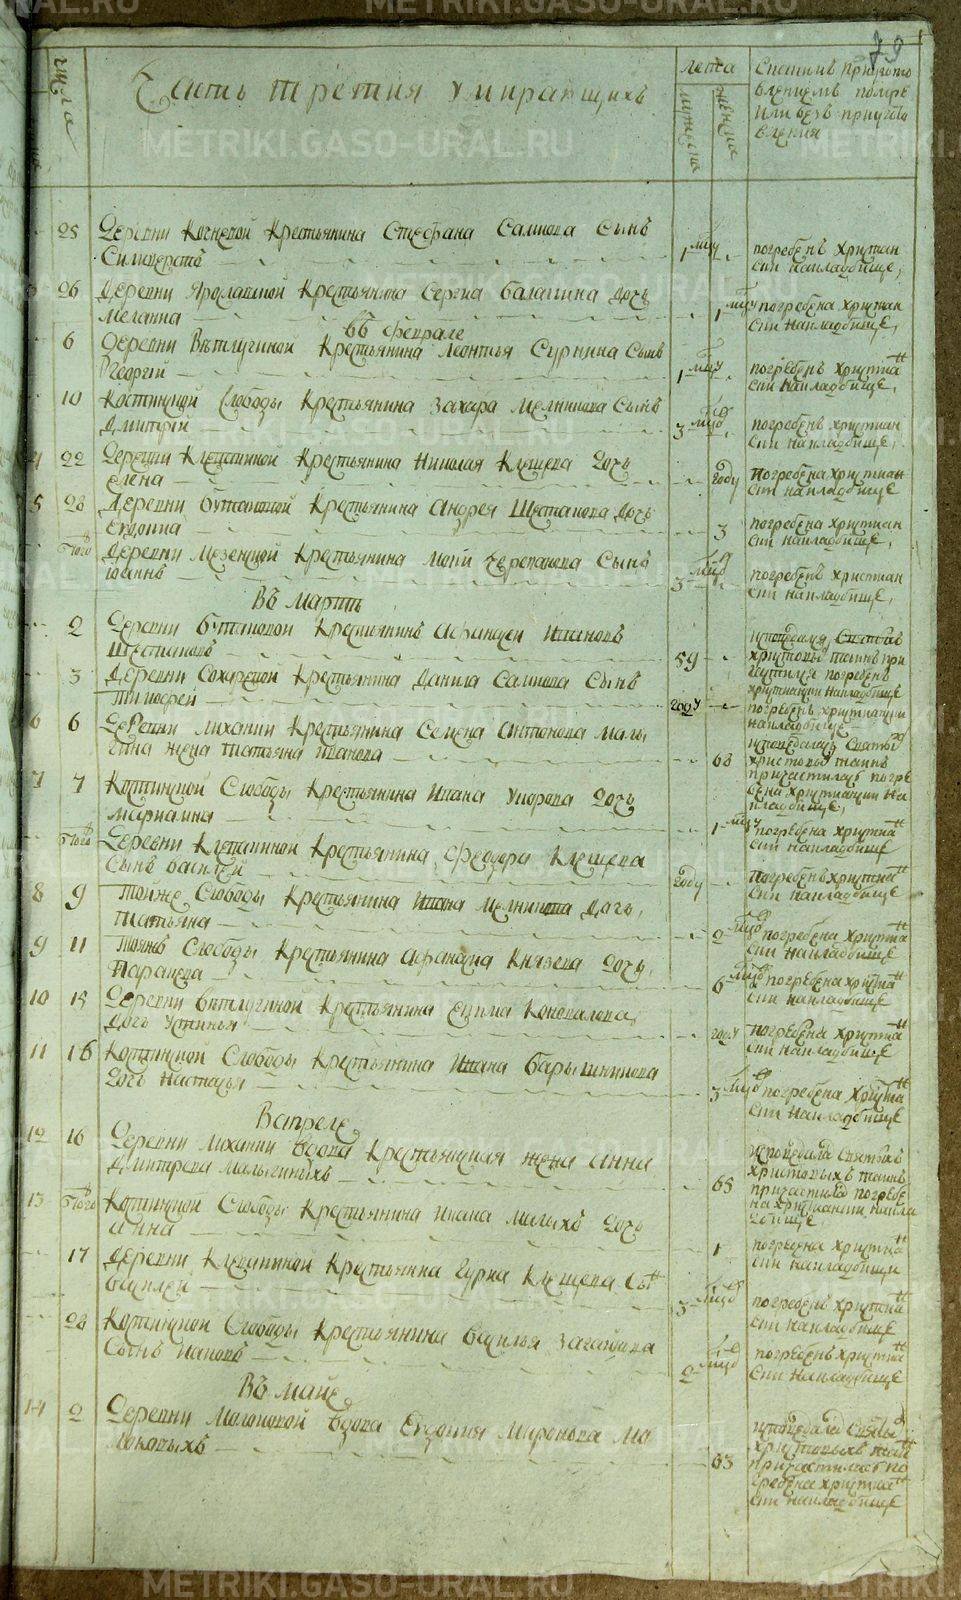 79
Часть третия умирающихъ
лета
мужеска
женска
Спетимъ приуго
влениемъ помре
или безъ приугов
вления
25 Деревни Кочневой Крестьянина Стефана Саликова Сынъ
Симверстъ 1 мцу погребенъ христиан
ски накладбище,
26 Деревни Ярославской Крестьянина Сергиа Балакина Дочь
Мелания 1 мцу погребена христиан
ски накладбище,
въ Феврале
6 Деревни Ветлугиной Крестьянина Леонтья Сурнина Сынъ
Георгий 1 мцу погребенъ христиан
ски накладбище,
10 Костинской Слободы Крестьянина Захара Мелникова Сынъ
Дмитрий 3 мцов погребенъ христиан
ски накладбище,
4 22 Деревни Клевакиной Крестьянина Николая Клещева Дочь
Елена году Погребена христиан
ски накладбище
5 28 Деревни Бутаковой Крестьянина Андрея Шестакова Дочь
Евдокиа 3 погребена христиан
ски накладбище,
того Деревни Мезенской Крестьянина Черепанова Сынъ
Иоаннъ 3 мцов погребенъ христиан
ски накладбище,
Въ Марте
2 Деревни Бутаковой Крестьянинъ Афанасей Ивановъ
Шестаковъ 59 исповедался, Святыхъ
христовы таинъ при
частился погребенъ
христиански накладбище
3 Деревни Сохаревой Крестьянина Данила Саликова Сынъ
Тимофей году погребенъ христиански
накладбище
6 6 Деревни Лихачии Крестьянина Семена Антонова Малы
гина жена Татьяна Иванова 68 исповедалась Святы
христовы таинъ
причастилась погре
бена христиански на
кладбище,
7 7 Костинской Слободы Крестьянина Ивана Упорова Дочь
Мариамна 1 мцу погребена христиа
ски накладбище
того Деревни Клевакиной Крестьянина Феодора Клещева
Сынъ Василей году Погребенъ христиа
ски накладбище
8 9 Тойже Слободы Крестьянина Ивана Мелникова Дочь,
Татьяна 2 мцов погребена христиа
ски накладбище
9 11 Тояжъ Слободы Крестьянина Афанасиа Князева Дочь,
Параскева 6 мцов погребена христиа
ски накладбище
10 15 Деревни Ветлугиной Крестьянина Екима Коновалова,
Дочь Устинья году погребена христиа
ски накладбище
11 16 Костинской Слободы Крестьянина Ивана Барышникова
Дочь Настасья 3 мцов погребена христиа
ски накладбище
Вапреле,
12 16 Деревни Лихачии Вдова Крестьянская жена Анна
Дмитрева Малыгиныхъ 65 исповедала Святыхъ
христовыхъ таинъ
причастила погребе
на христиански накла
дбище,
13 того Костинской Слободы Крестьянина Ивана Малыхъ Дочь
Анна 1 погребена христиа
ски накладбищи
17 Деревни Клевакиной Крестьянина Гурия Клещева Сын
Василей 3 мцов погребенъ христиа
ски накладбище
28 Костинской Слободы Крестьянина Василья Загайнова
Сынъ Иаковъ 2 мцов погребенъ христиа
ски накладбище
Въ Майе,
14 2 Деревни Мококовой Вдова Евдокия Миронова Мо
коковыхъ 63 исповедалась Святы
христовыхъ таин
причастилась по
гребена христиа
ски накладбище